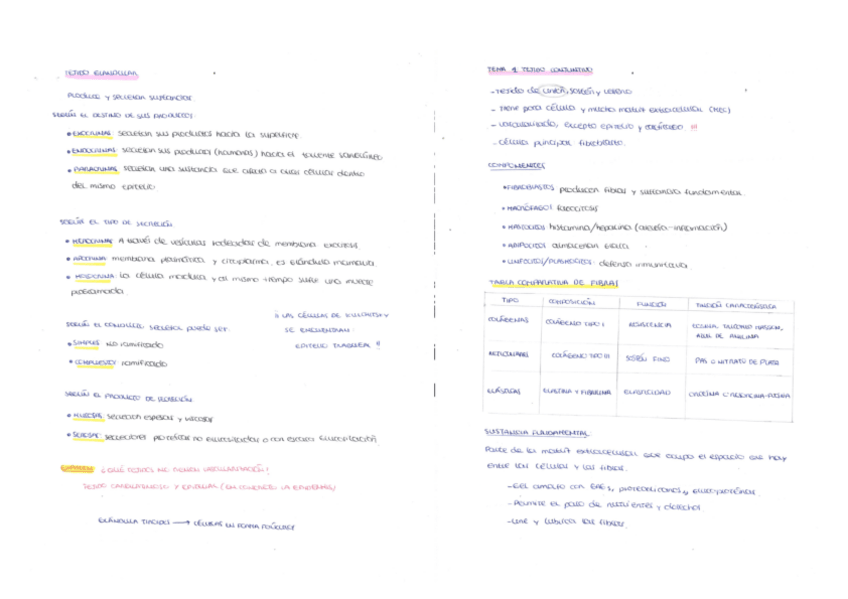 TEJIDO GLANDULAR
Produce y secretan sustancias
SEGÚN EL DESTINO DE SUS PRODUCTOS:
• EXOCRINAS: secretan sus productos hacia la superficie.
• ENDOCRINAS: secretan sus productos (hormonas) hacia el torrente sanguíneo
• PARACRINAS: secretan una sustancia que afecta a otras células dentro
del mismo epitelio
SEGÚN EL TIPO DE SECRECIÓN
• MEROCRINAS: A través de vesículas rodeadas de membrana
• APOCRINA: membrana plasmática y citoplasma, ej glándula mamaria.
• HOLOCRINA: La célula madura y al mismo tiempo sufre una muerte
programada.
SEGÚN EL CONDUCTO secretor puede ser:
• SIMPLES: NO ramificado
• COMPLEJOS: ramificado
¡¡ LAS CÉLULAS DE
SE ENCUENTRAN
EPITELIO !!
SEGÚN EL PRODUCTO DE SECRECIÓN
• MUCOSAS: secreción espesa y viscosa
• SEROSAS: secreciones proteicas no glucosiladas o con escasa glucosilación
EXAMEN: ¿QUÉ TEJIDOS NO TIENEN VASCULARIZACIÓN?
TEJIDO CARTILAGINOSO Y EPITELIAL (EN CONCRETO LA EPIDERMIS)
GLÁNDULA TIROIDES → CÉLULAS EN FORMA
TEMA 9. TEJIDO CONJUNTIVO
- Tejido de unión, sostén y relleno
- Tiene poca célula y mucha matriz extracelular (MEC)
- Vascularizado, excepto epitelio y cartílago !!!
- Célula principal: fibroblasto.
COMPONENTES
• FIBROBLASTOS: producen fibras y sustancia fundamental.
• MACRÓFAGOS: fagocitosis
• MASTOCITOS: histamina/heparina (alergia-inflamación)
• ADIPOCITOS: almacenan grasa
• LINFOCITOS/PLASMOCITOS: defensa inmunitaria
TABLA COMPARATIVA DE FIBRAS
TIPO COMPOSICIÓN FUNCIÓN TINCIÓN CARACTERÍSTICA
COLÁGENAS COLÁGENO TIPO I RESISTENCIA EOSINA, TRICRÓMICO MASSON, AZUL DE ANILINA
RETICULARES COLÁGENO TIPO III SOSTÉN FINO PAS O NITRATO DE PLATA
ELÁSTICAS ELASTINA Y FIBRILINA ELASTICIDAD ORCEÍNA O
SUSTANCIA FUNDAMENTAL:
Parte de la matriz extracelular que ocupa el espacio que hay
entre las células y las fibras.
- Gel amorfo con GAGs, proteoglicanos y glucoproteínas.
- Permite el paso de nutrientes y desechos
- Une y lubrica las fibras.